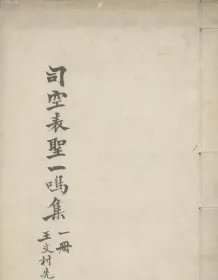 司空表聖一鳴集
一冊
王文村先